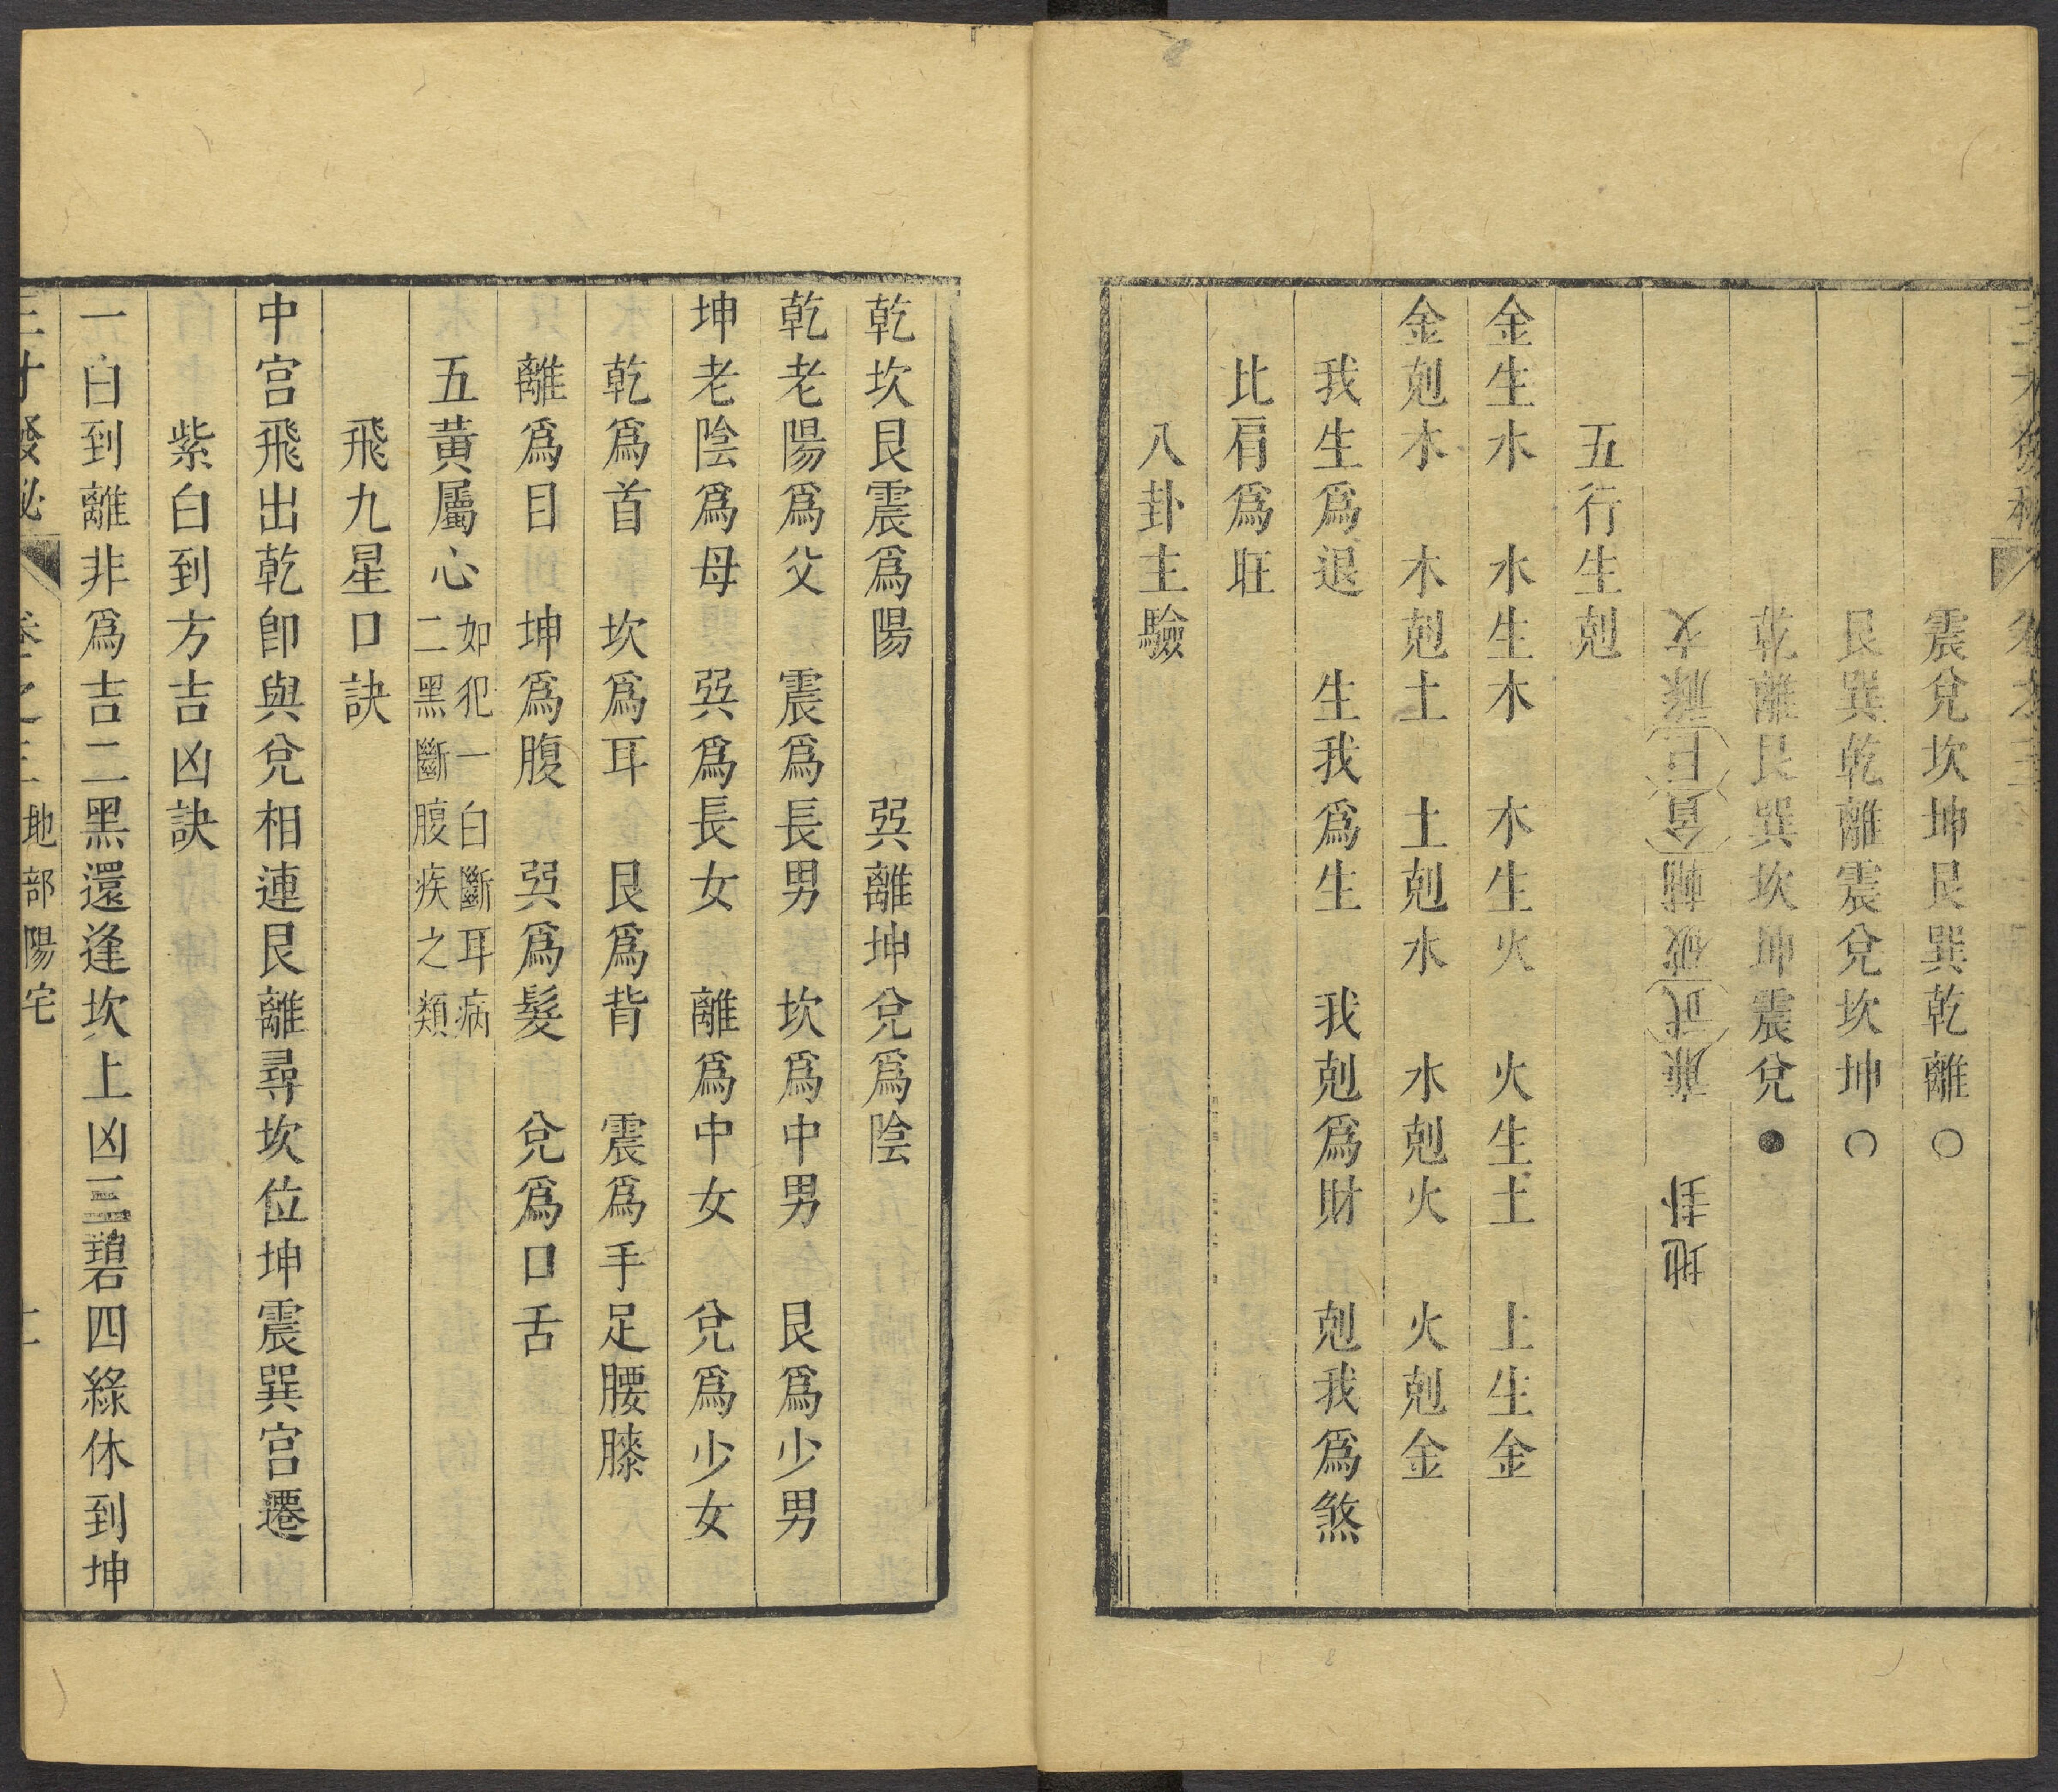 三才發秘 卷之三
震兌坎坤艮巽乾離〇
艮巽乾離震兌坎坤〇
乾離艮巽坎坤震兌●
地卦 廉武破輔貪巨祿文
五行生剋
金生水 水生木 木生火 火生土 土生金
金剋木 木剋土 土剋水 水剋火 火剋金
我生爲退 生我爲生 我剋爲財 剋我爲煞
比肩爲旺
八卦主驗
乾坎艮震爲陽 巽離坤兌爲陰
乾老陽爲父 震爲長男 坎爲中男 艮爲少男
坤老陰爲母 巽爲長女 離爲中女 兌爲少女
乾爲首 坎爲耳 艮爲背 震爲手足腰膝
離爲目 坤爲腹 巽爲髮 兌爲口舌
五黃屬心 如犯一白斷耳病
二黑斷腹疾之類
飛九星口訣
中宫飛出乾卽與兌相連艮離尋坎位坤震巽宫遷
紫白到方吉凶訣
一白到離非爲吉二黑還逢坎上凶三碧四綠休到坤
三才發秘 卷之三 地部陽宅